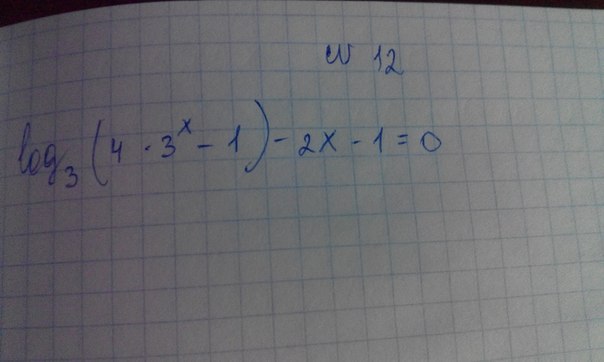 № 12
log₃(4 · 3ˣ - 1) - 2x - 1 = 0